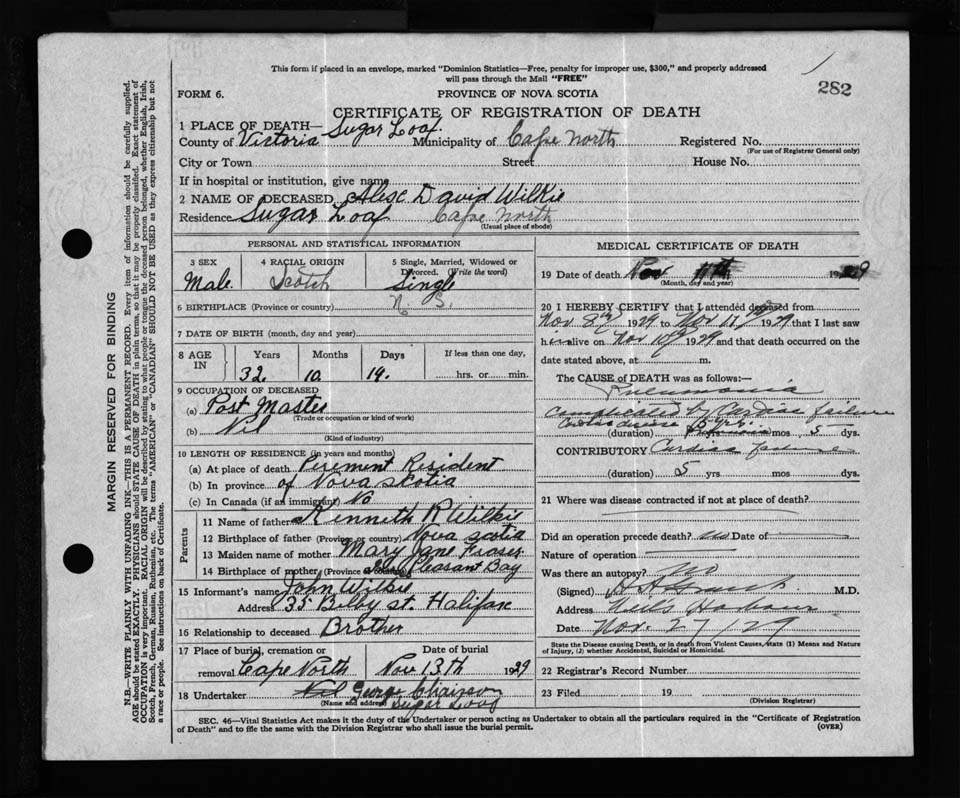 This form if placed in an envelope, marked "Dominion Statistics—Free, penalty for improper use, $300," and properly addressed
will pass through the Mail "FREE"
282
FORM 6.
PROVINCE OF NOVA SCOTIA
CERTIFICATE OF REGISTRATION OF DEATH
1 PLACE OF DEATH— Sugar Loaf.
County of Victoria Municipality of Cape North Registered No.
(For use of Registrar General only)
City or Town Street House No.
If in hospital or institution, give name
2 NAME OF DECEASED Alex David Wilkie
Residence Sugar Loaf Cape North
(Usual place of abode)
PERSONAL AND STATISTICAL INFORMATION
3 SEX 4 RACIAL ORIGIN 5 Single, Married, Widowed or
Divorced. (Write the word)
Male Scotch Single
6 BIRTHPLACE (Province or country) N. S.
7 DATE OF BIRTH (month, day and year)
8 AGE IN Years Months Days If less than one day,
32. 10. 14. hrs. or min.
9 OCCUPATION OF DECEASED
(a) Post Master
(Trade or occupation or kind of work)
(b) Nil
(Kind of industry)
10 LENGTH OF RESIDENCE (in years and months)
(a) At place of death Perement Resident
(b) In province of Nova Scotia
(c) In Canada (if an immigrant) No
Parents
11 Name of father Kenneth R Wilkie
12 Birthplace of father (Province or country) Nova Scotia
13 Maiden name of mother Mary Jane Fraser
14 Birthplace of mother (Province Pleasant Bay
15 Informant's name John Wilkie
Address 35 Bilby st. Halifax
16 Relationship to deceased Brother
17 Place of burial, cremation or Date of burial
removal Cape North Nov 13th 1929
18 Undertaker George
(Name and address) Sugar Loaf
MEDICAL CERTIFICATE OF DEATH
19 Date of death Nov 11th 1929
(Month, day and year)
20 I HEREBY CERTIFY that I attended deceased from
Nov 8th 1929 to Nov 11th 1929 that I last saw
him alive on Nov 10th 1929 and that death occurred on the
date stated above, at m.
The CAUSE of DEATH was as follows:—
Pneumonia
complicated by Cardiac failure
(duration) mos 5 dys.
CONTRIBUTORY Cardiac failure
(duration) 5 yrs mos dys.
21 Where was disease contracted if not at place of death?
Did an operation precede death? no Date of
Nature of operation
Was there an autopsy? No
(Signed) M.D.
Address Neils Harbour
Date Nov. 27/29
State the Disease causing Death, or in deaths from Violent Causes, state (1) Means and Nature
of Injury, (2) whether Accidental, Suicidal or Homicidal.
22 Registrar's Record Number
23 Filed 19
(Division Registrar)
SEC. 46—Vital Statistics Act makes it the duty of the Undertaker or person acting as Undertaker to obtain all the particulars required in the "Certificate of Registration
of Death" and to file the same with the Division Registrar who shall issue the burial permit.
(OVER)
MARGIN RESERVED FOR BINDING
N.B.—WRITE PLAINLY WITH UNFADING INK—THIS IS A PERMANENT RECORD. Every item of information should be carefully supplied.
AGE should be stated EXACTLY. PHYSICIANS should STATE CAUSE OF DEATH in plain terms, so that it may be properly classified. Exact statement of
OCCUPATION is very important. RACIAL ORIGIN will be described by stating to what people or tongue the deceased person belonged, whether English, Irish,
Scotch, French, German, Russian, Ruthenian, etc. The terms "AMERICAN" or "CANADIAN" SHOULD NOT BE USED as they express citizenship but not
a race or people. See instructions on back of Certificate.